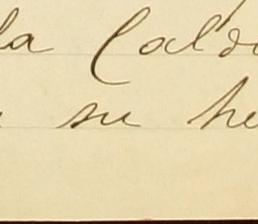 la Cald
su he